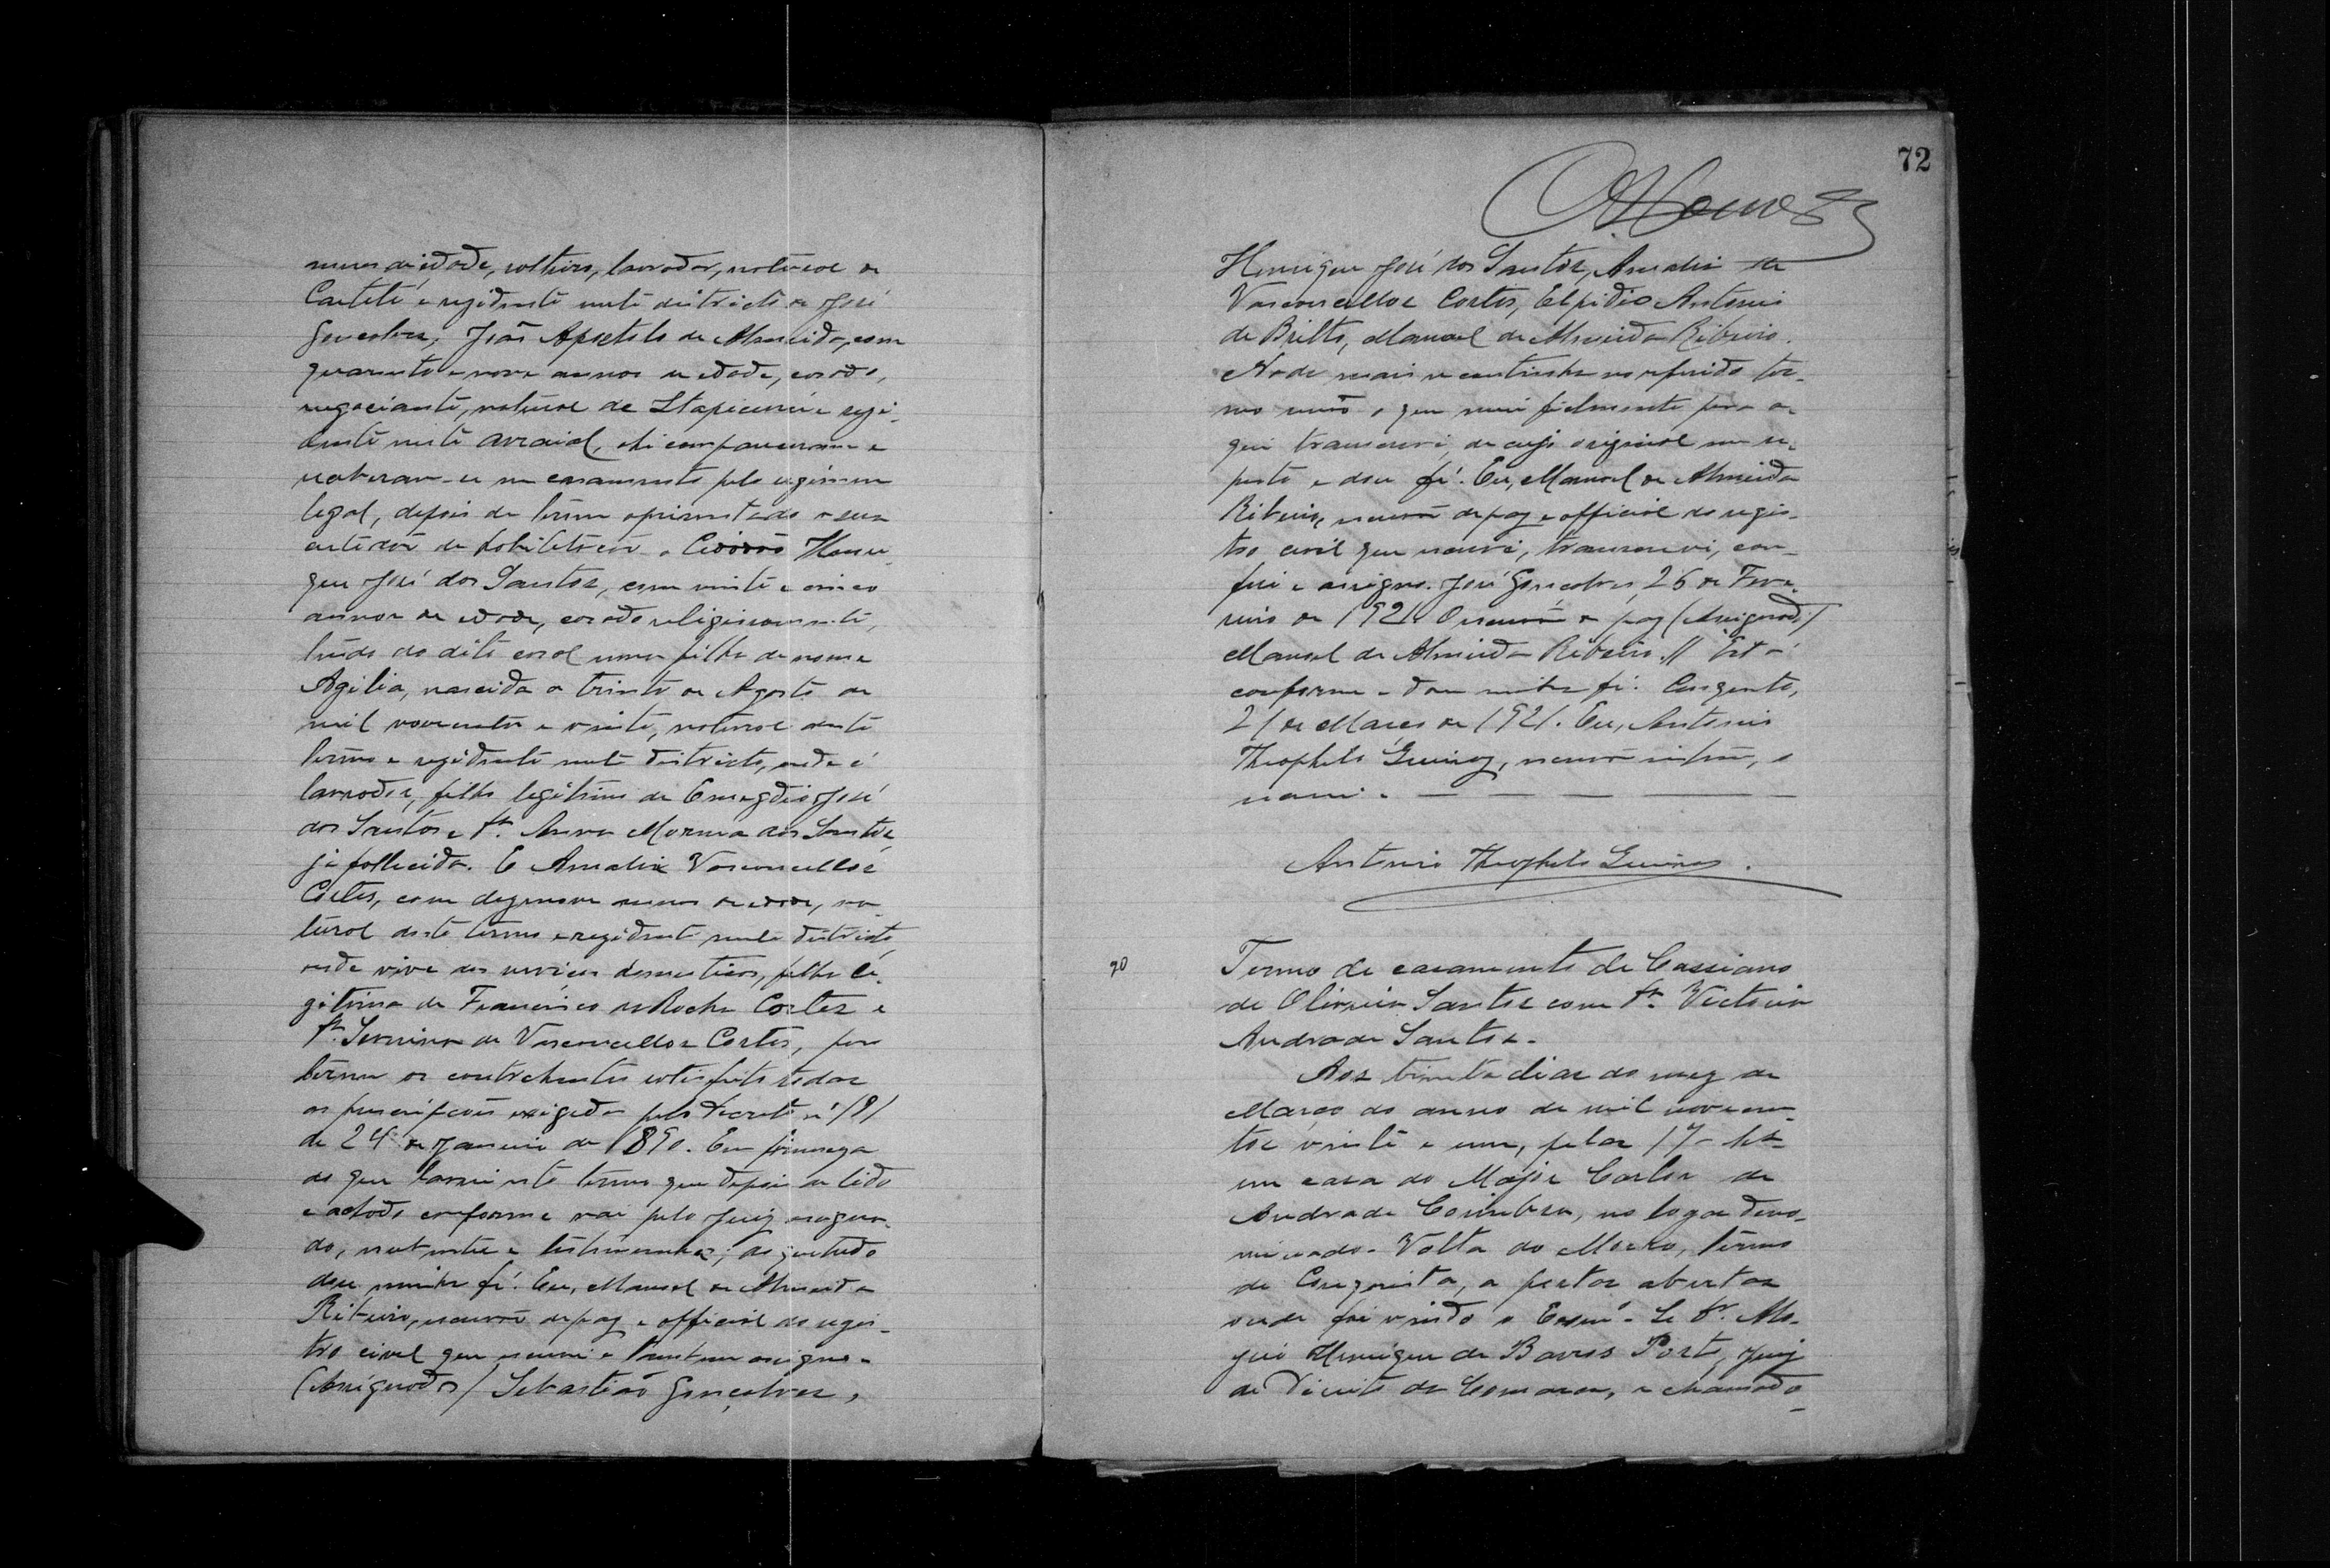 annos de idade, solteiro, lavrador, natural de
Caeteté e rezidente neste districto de José
Gonçalves, João Apostolo de Almeida, com
quarenta e nove annos de edade, casado,
negociante, natural de Itapicurú e rezi-
dente neste arraial, ahi compareceram e
receberam-se em casamento pelo regimem
legal, depois de terem apresentado a sua
certidão de habilitação o Cidadão Henri-
que José dos Santos, com vinte e cinco
annos de edade, casado religiosamente,
tendo do dito casal uma filha de nome
Agilia, nascida a trinta de Agosto de
mil novecentos e vinte, natural deste
termo e rezidente neste districto, onde é
lavrador, filho legitimo de Emegdio José
dos Santos e Dª. Anna Morena dos Santos,
já fallecida. E Amalia Vasconcellos
Cortes, com dezenove annos de edade, na-
tural deste termo e rezidente neste districto,
onde vive dos serviços domesticos, filha le-
gitima de Francisco da Rocha Cortes e
Dª. Senrinha de Vasconcellos Cortes, por
terem os contrahentes satisfeito todas
as prescripções exigidas pelo Decreto nº 181
de 24 de Janeiro de 1890. Em firmeza
do que lavrei este termo que depois de lido
e achado conforme vae pelo Juiz assigna-
do, nubentes e testemunhas; do que tudo
dou minha fé. Eu, Manoel de Almeida
Ribeiro, escrivão de paz e official do regis-
tro civel que escrevi e tambem assigno.
(Assignados) Sebastião Gonçalves,
72
Henrique José dos Santos, Amalia de
Vasconcellos Cortes, Elpidio Antonio
de Britto, Manoel de Almeida Ribeiro.
Nada mais se continha no referido ter-
mo senão o que mui fielmente para a-
qui transcrevi, de cujo original me re-
porto e dou fé. Eu, Manoel de Almeida
Ribeiro, escrivão de paz e official do regis-
tro civil que escrevi, transcrevi, con-
feri e assigno. José Gonçalves, 26 de Feve-
reiro de 1921. O escrivão de paz (Assignado)
Manoel de Almeida Ribeiro. // Está
conforme e dou minha fé. Conquista,
21 de Março de 1921. Eu, Antonio
Theophilo Queiroz, escrivão interino, o
escrevi.
Antonio Theophilo Queiroz.
90
Termo de casamento de Cassiano
de Oliveira Santos com Dª. Victoria
Andrade Santos.
Aos trinta dias do mez de
Março do anno de mil novecen-
tos vinte e um, pelas 17 hs
em casa do Major Carlos de
Andrade Coimbra, no logar deno-
minado Volta do Morro, termo
de Conquista, a portas abertas
onde foi vindo o Exmº. Sr. Dr. Ma-
Henrique de Barros Porto, Juiz
de Direito da Comarca, e chamado